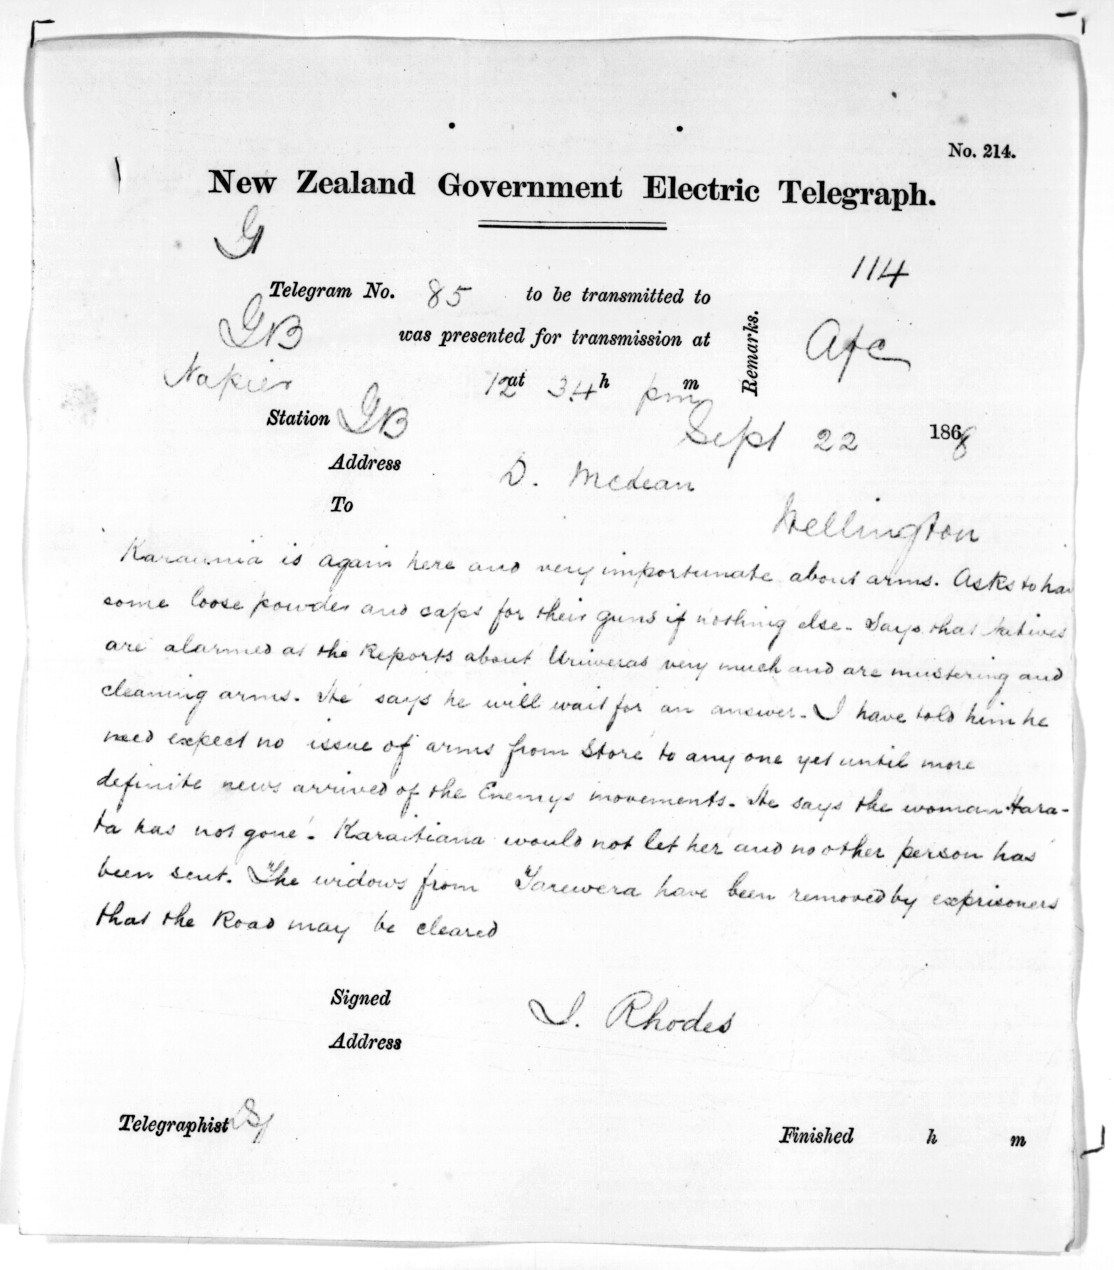 No. 214.
New Zealand Government Electric Telegraph.
G
114
Telegram No. 85 to be transmitted to
GB was presented for transmission at
Remarks.
Napier 12 at 34 h pm m
Station GB Sept 22 1868
Address D. McLean
To Wellington
is again here and very importunate about arms. Asks to hav
some loose powder and caps for their guns if nothing else - Says that Natives
are alarmed at the Reports about Uriweras very much and are mustering and
cleaning arms. He says he will wait for an answer. I have told him he
need expect no issue of arms from Store to any one yet until more
definite news arrived of the Enemys movements. He says the woman Hara-
ta has not gone. Karaitiana would not let her and no other person has
been sent. The widows from Tarewera have been removed by exprisoners
that the Road may be cleared
Signed J. Rhodes
Address
Telegraphist
Finished h m